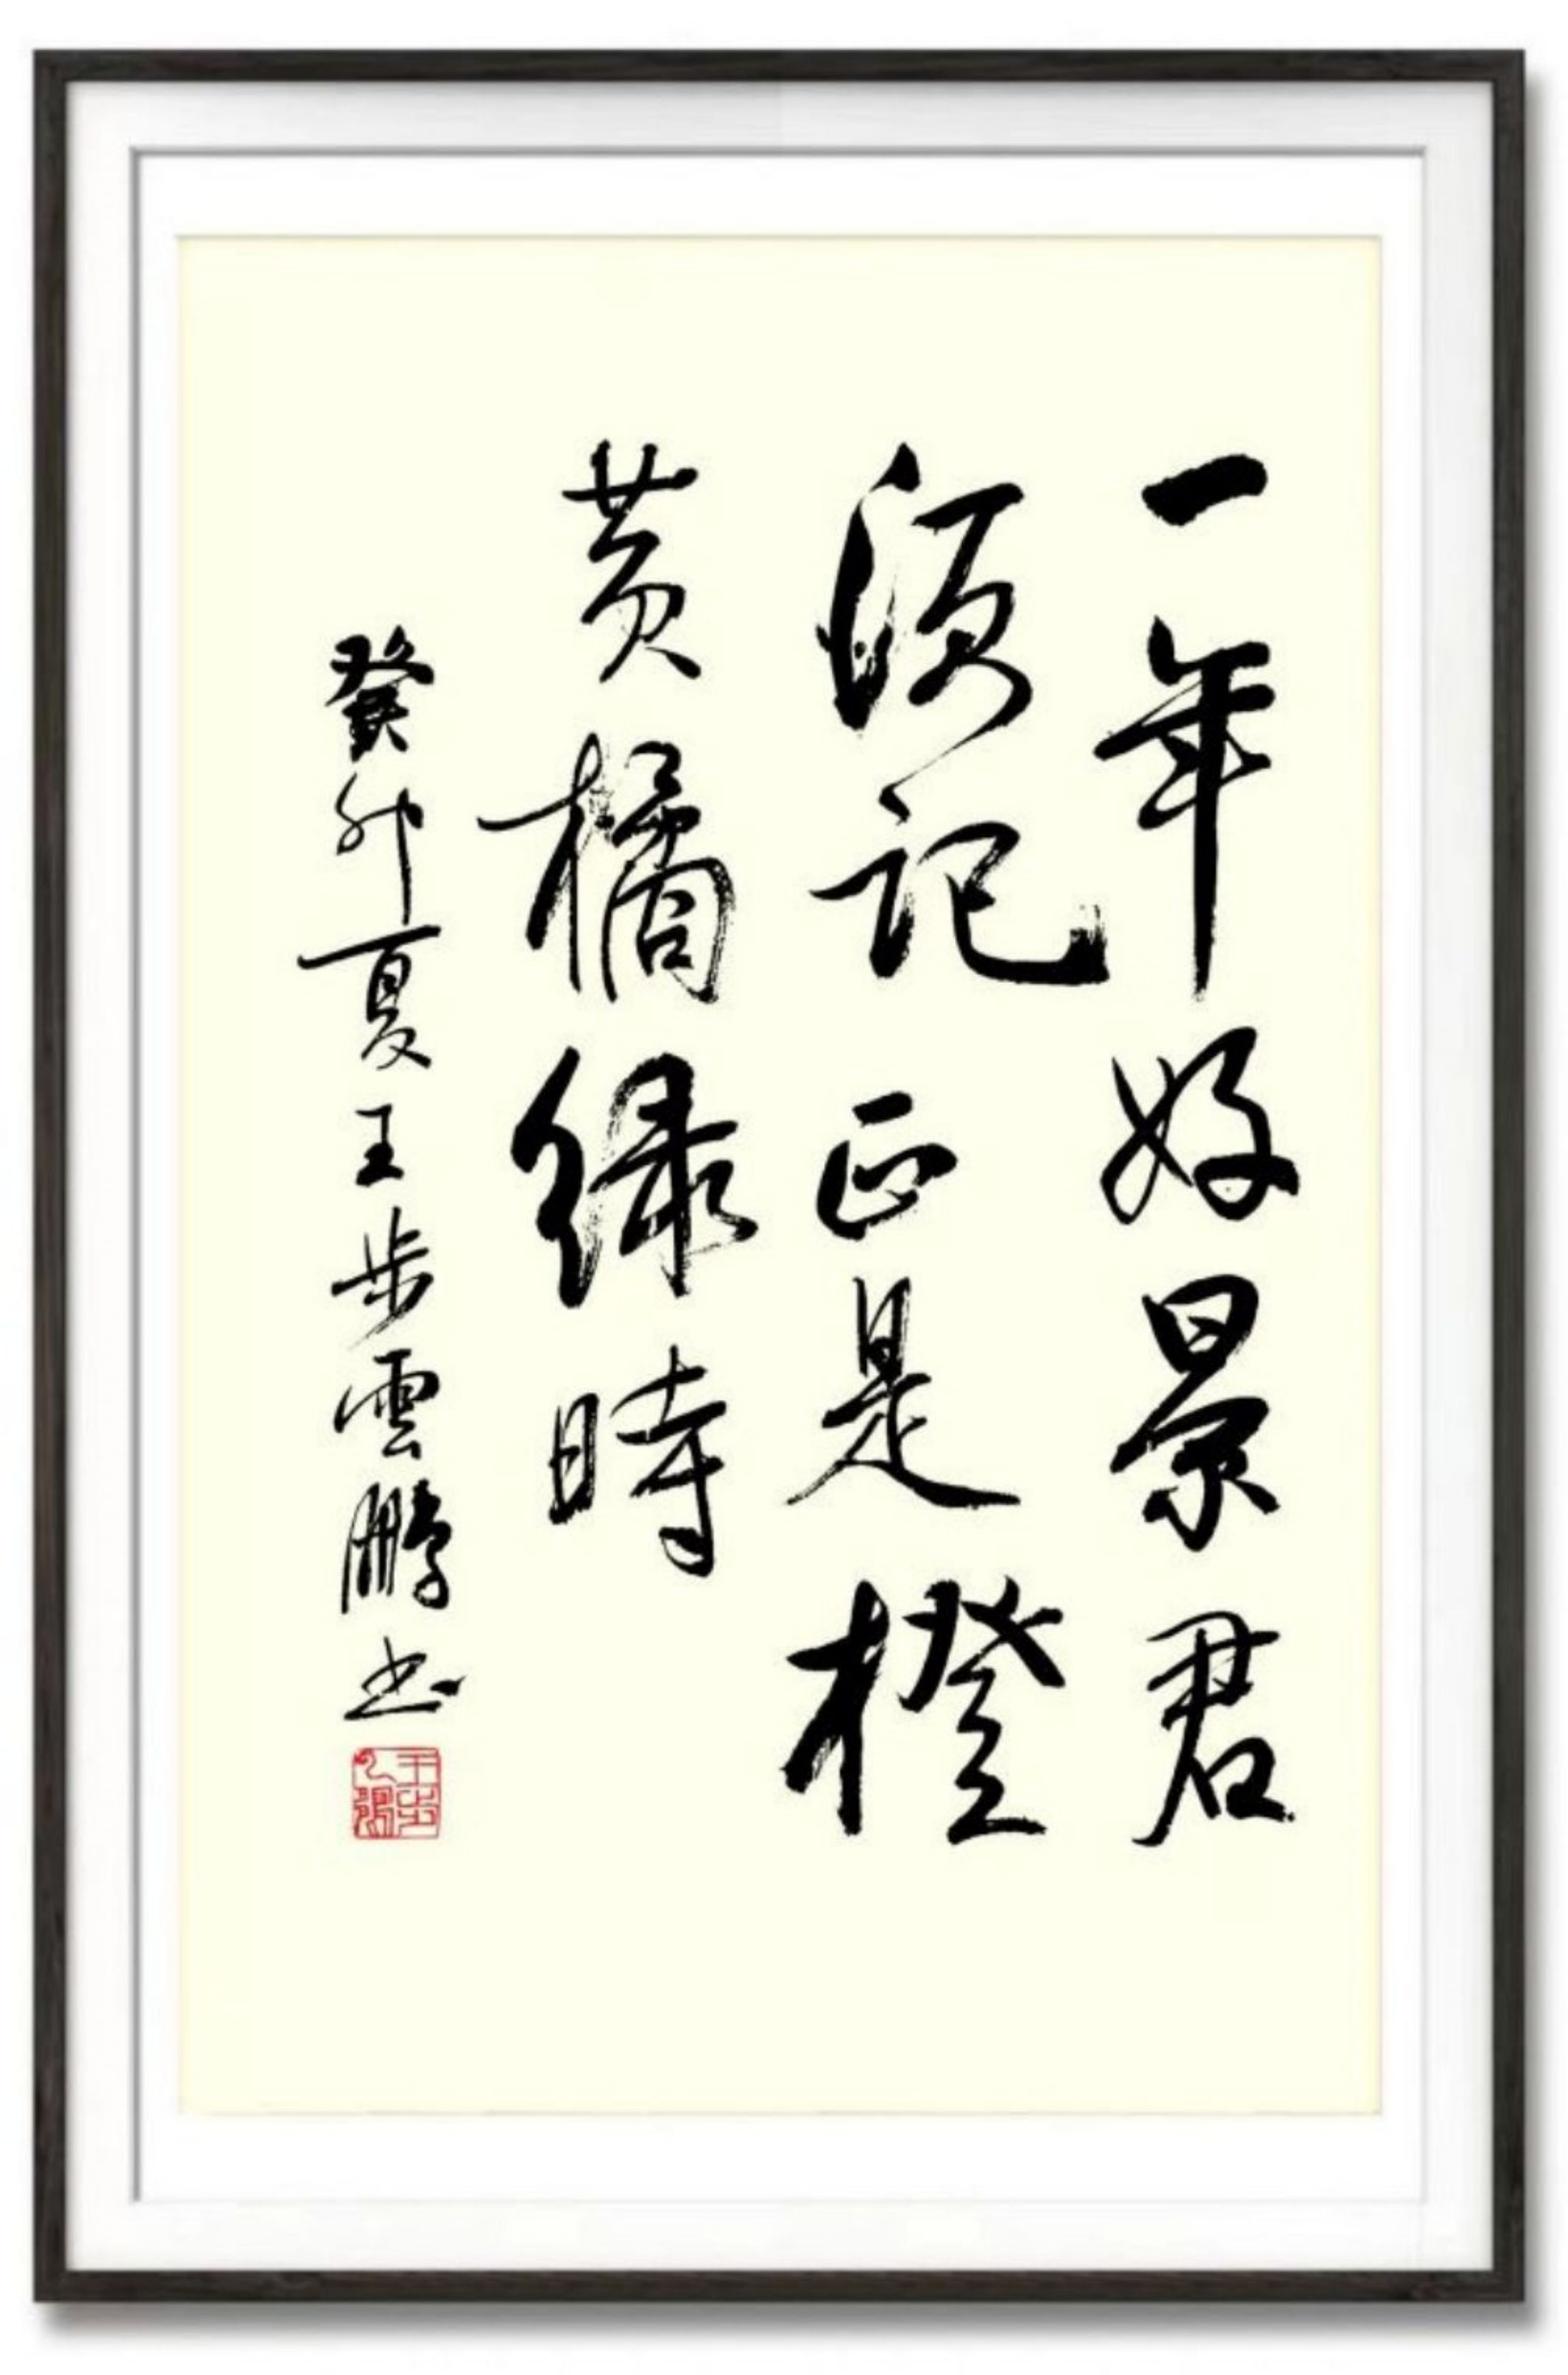 一年好景君
須記正是橙
黄橘緑時
癸卯夏王步雲鵬书